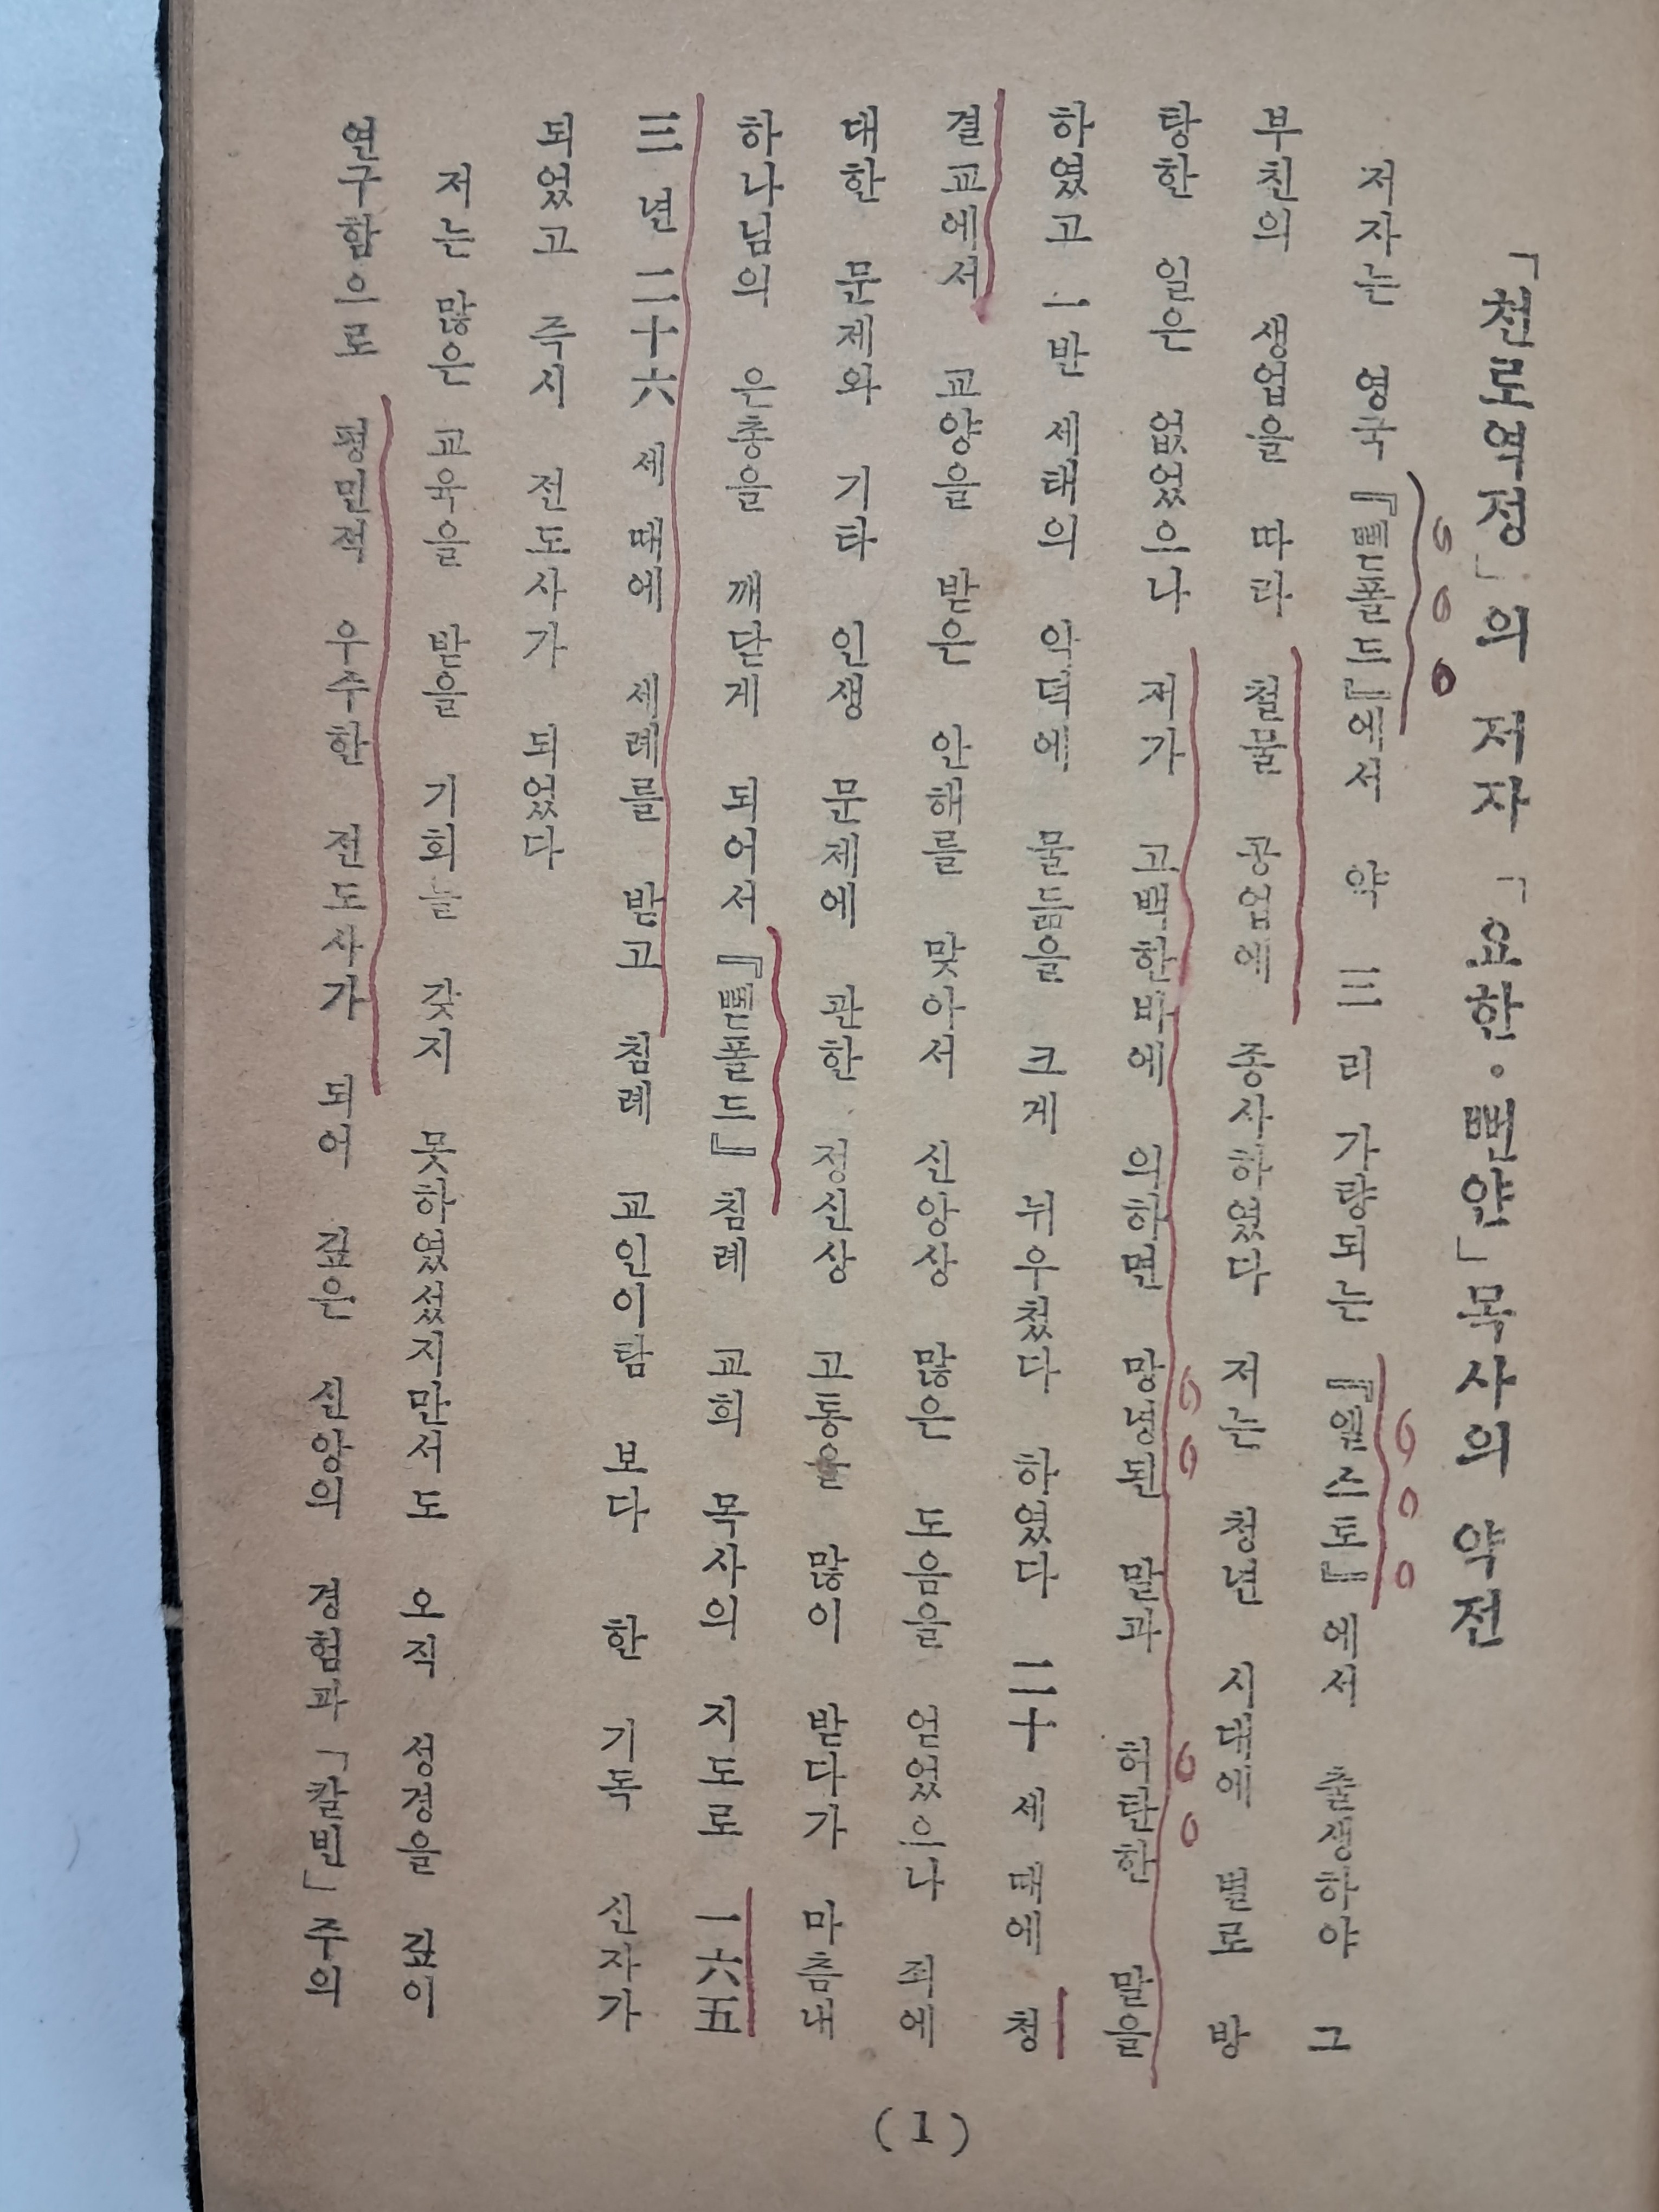 「천로역정」의 저자 「요한·뻔얀」 목사의 약전
저자는 영국 『뻗폴드』에서 약 三 리 가량되는 『엘스토』에서 출생하야 그
부친의 생업을 따라 철물 공업에 종사하였다 저는 청년 시대에 별로 방
탕한 일은 없었으나 저가 고백한바에 의하면 망녕된 말과 허탄한 말을
하였고 一반 세태의 악덕에 물듦을 크게 뉘우쳤다 하였다 二十 세 때에 청
결교에서 교양을 받은 안해를 맞아서 신앙상 많은 도음을 얻었으나 죄에
대한 문제와 기타 인생 문제에 관한 정신상 고통을 많이 받다가 마츰내
하나님의 은총을 깨닫게 되어서 『뻗폴드』 침례 교회 목사의 지도로 一六五
三 년 二十六 세 때에 세례를 받고 침례 교인이람 보다 한 기독 신자가
되었고 즉시 전도사가 되었다
저는 많은 교육을 받을 기회는 갖지 못하였섰지만서도 오직 성경을 깊이
연구함으로 평민적 우수한 전도사가 되어 깊은 신앙의 경험과 「칼빈」주의
(1)